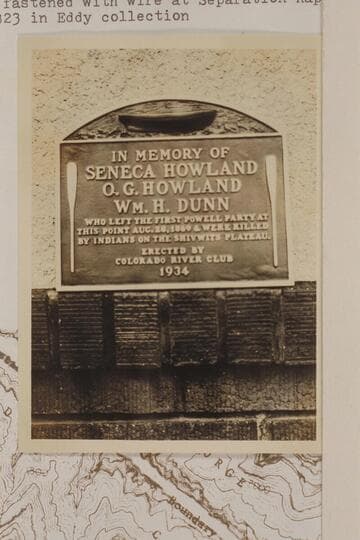 fastened with wire at Separation Rap
823 in Eddy collection
IN MEMORY OF
SENECA HOWLAND
O. G. HOWLAND
WM. H. DUNN
WHO LEFT THE FIRST POWELL PARTY AT
THIS POINT AUG. 28, 1869 & WERE KILLED
BY INDIANS ON THE SHIVWITS PLATEAU.
ERECTED BY
COLORADO RIVER CLUB
1934
Boundary